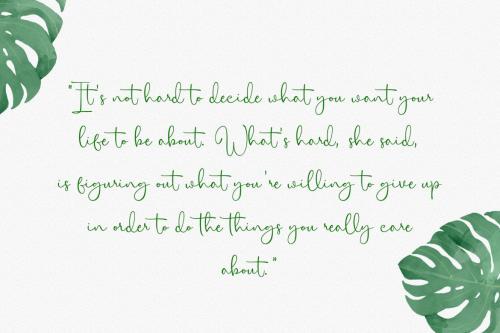 "It's not hard to decide what you want your
life to be about. What's hard, she said,
is figuring out what you're willing to give up
in order to do the things you really care
about."